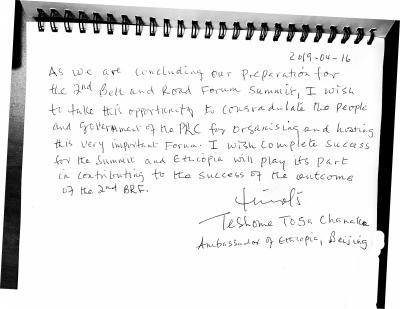 2019-04-16
As we are concluding our preparation for
the 2nd Belt and Road Forum Summit, I wish
to take this opportunity to congradulate the people
and Government of the PRC for organising and hosting
this very important Forum. I wish complete success
for the Summit and Ethiopia will play its part
in contributing to the success of the outcome
of the 2nd BRF.
Teshome Toga Chanaka
Ambassador of Ethiopia, Beijing